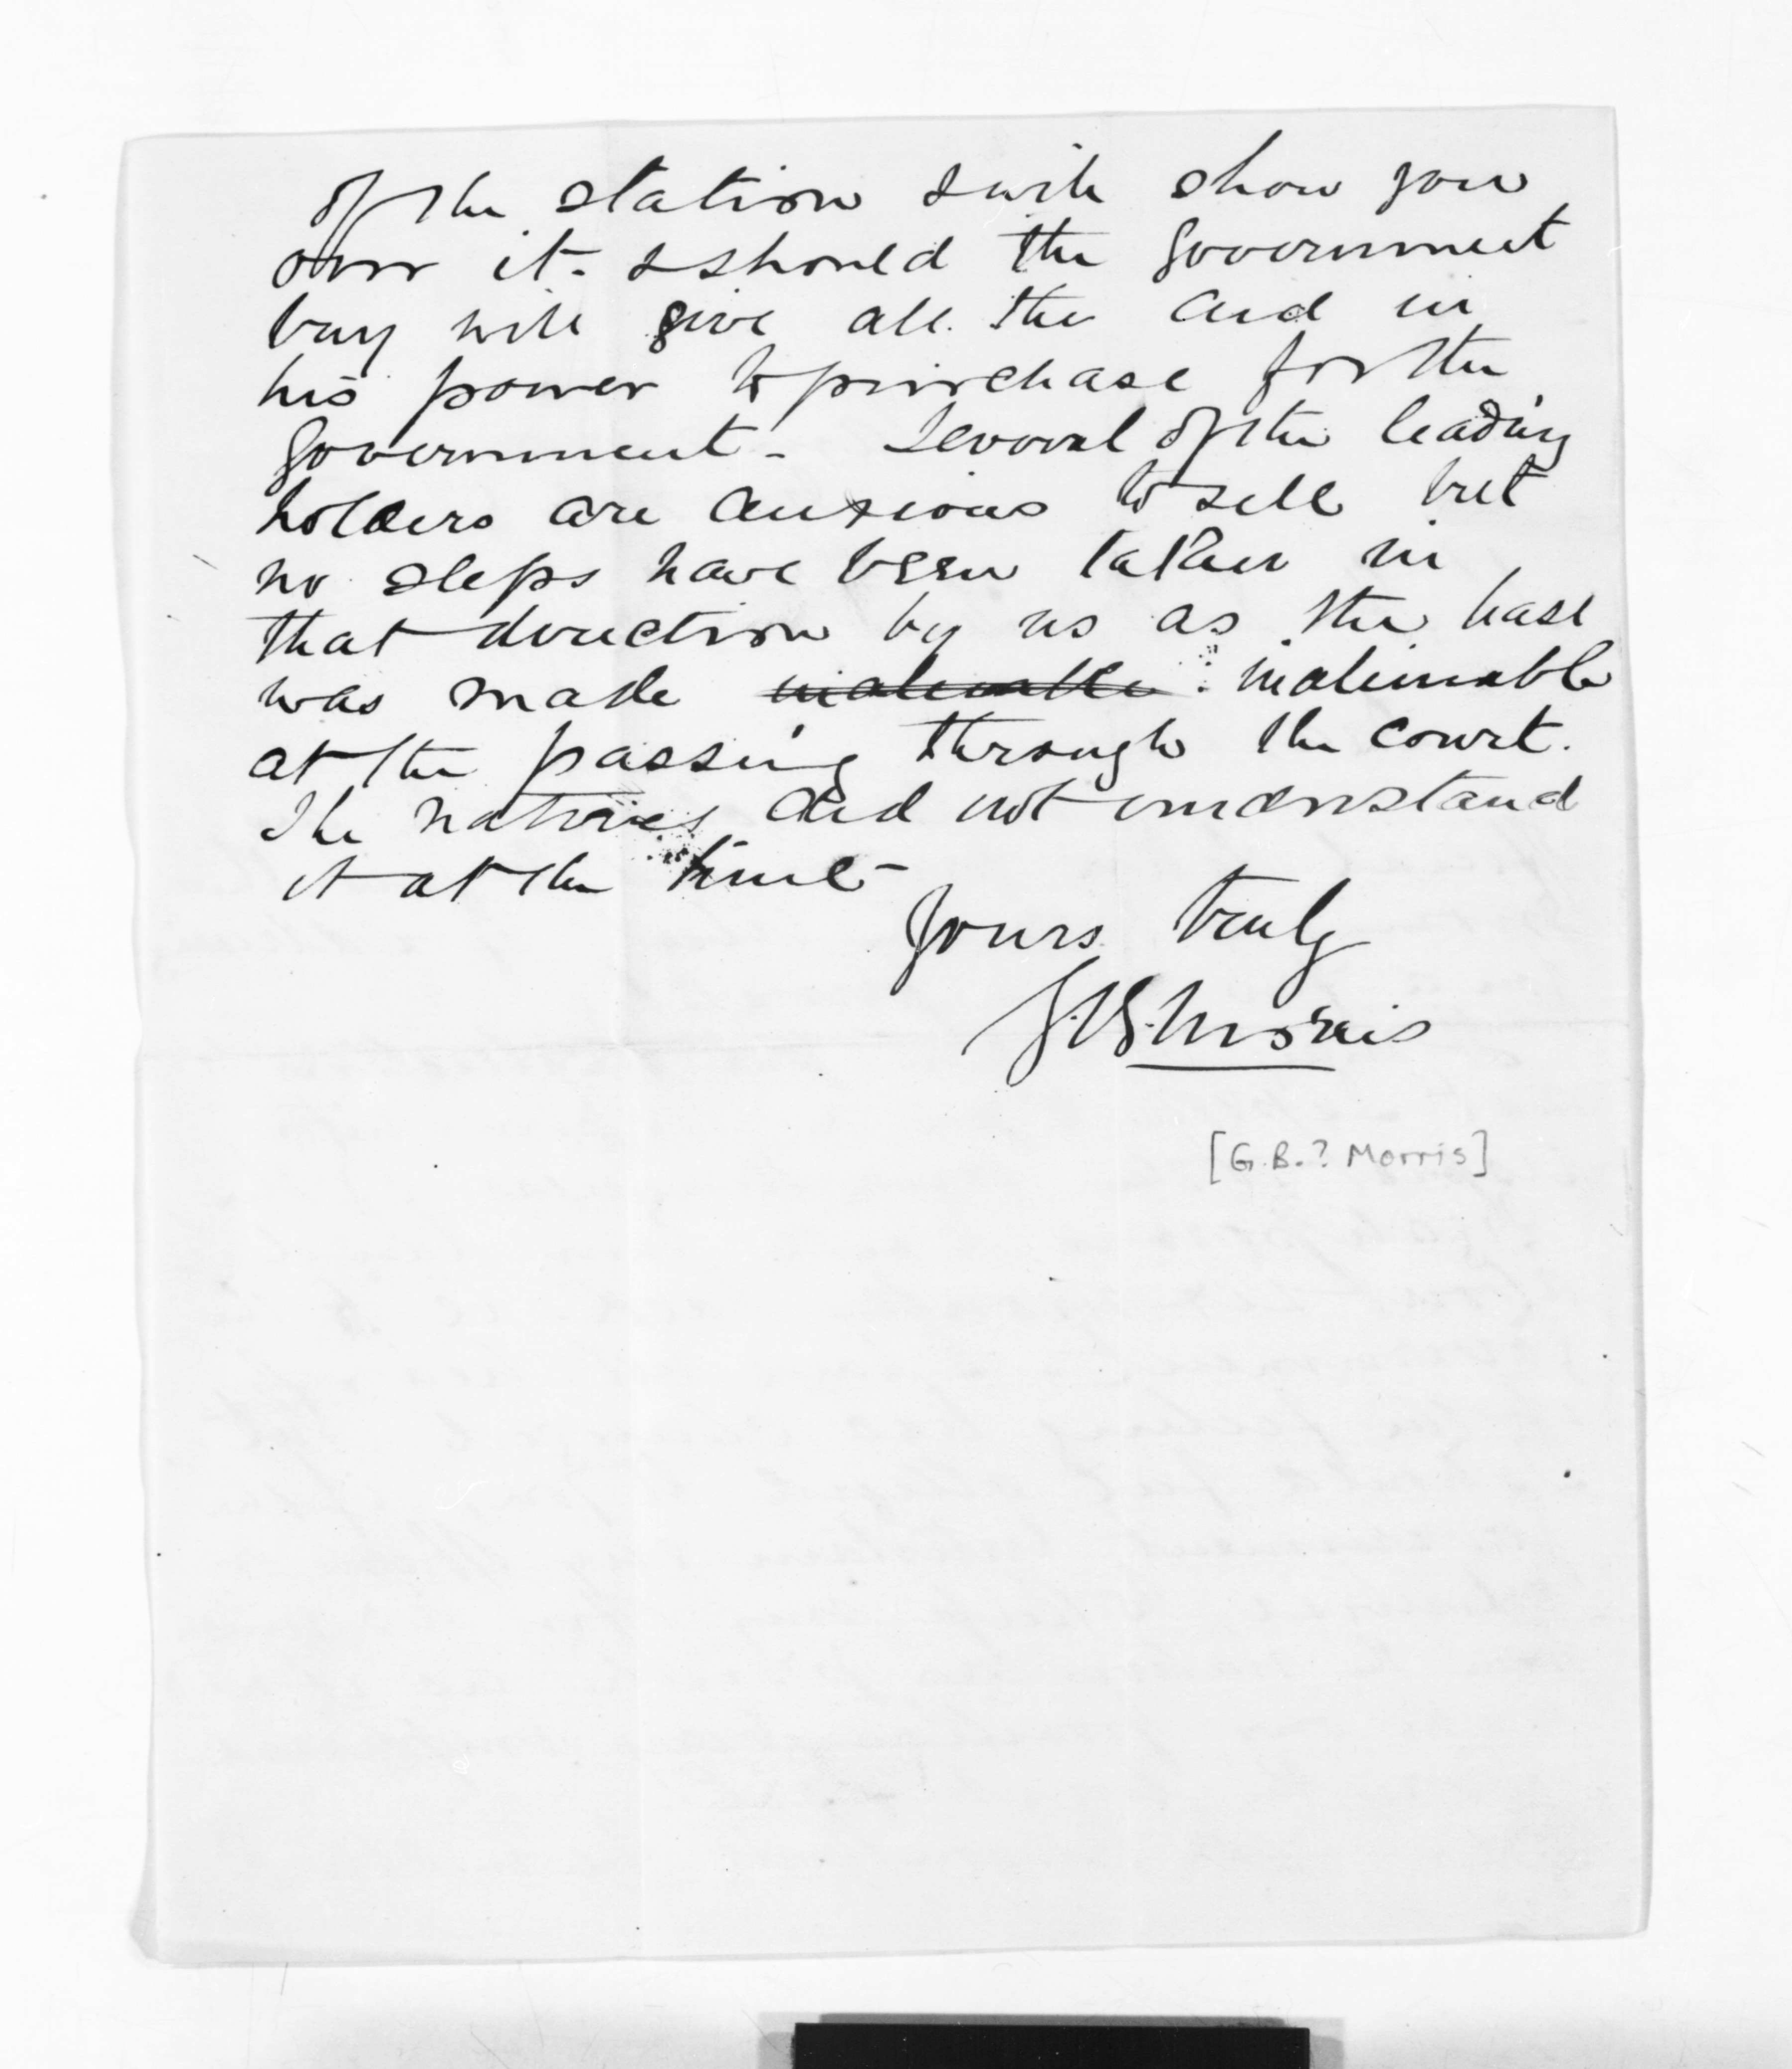 of the station & will show you
over it. & should the Government
buy will give all the aid in
his power to purchase for the
Government - Several of the leading
holders are anxious to sell but
no steps have been taken in
that direction by us as the
was made inalienable
at the passing through the court.
The natives did not understand
it at the time -
Yours truly
G.B. Morris
[G.B.? Morris]